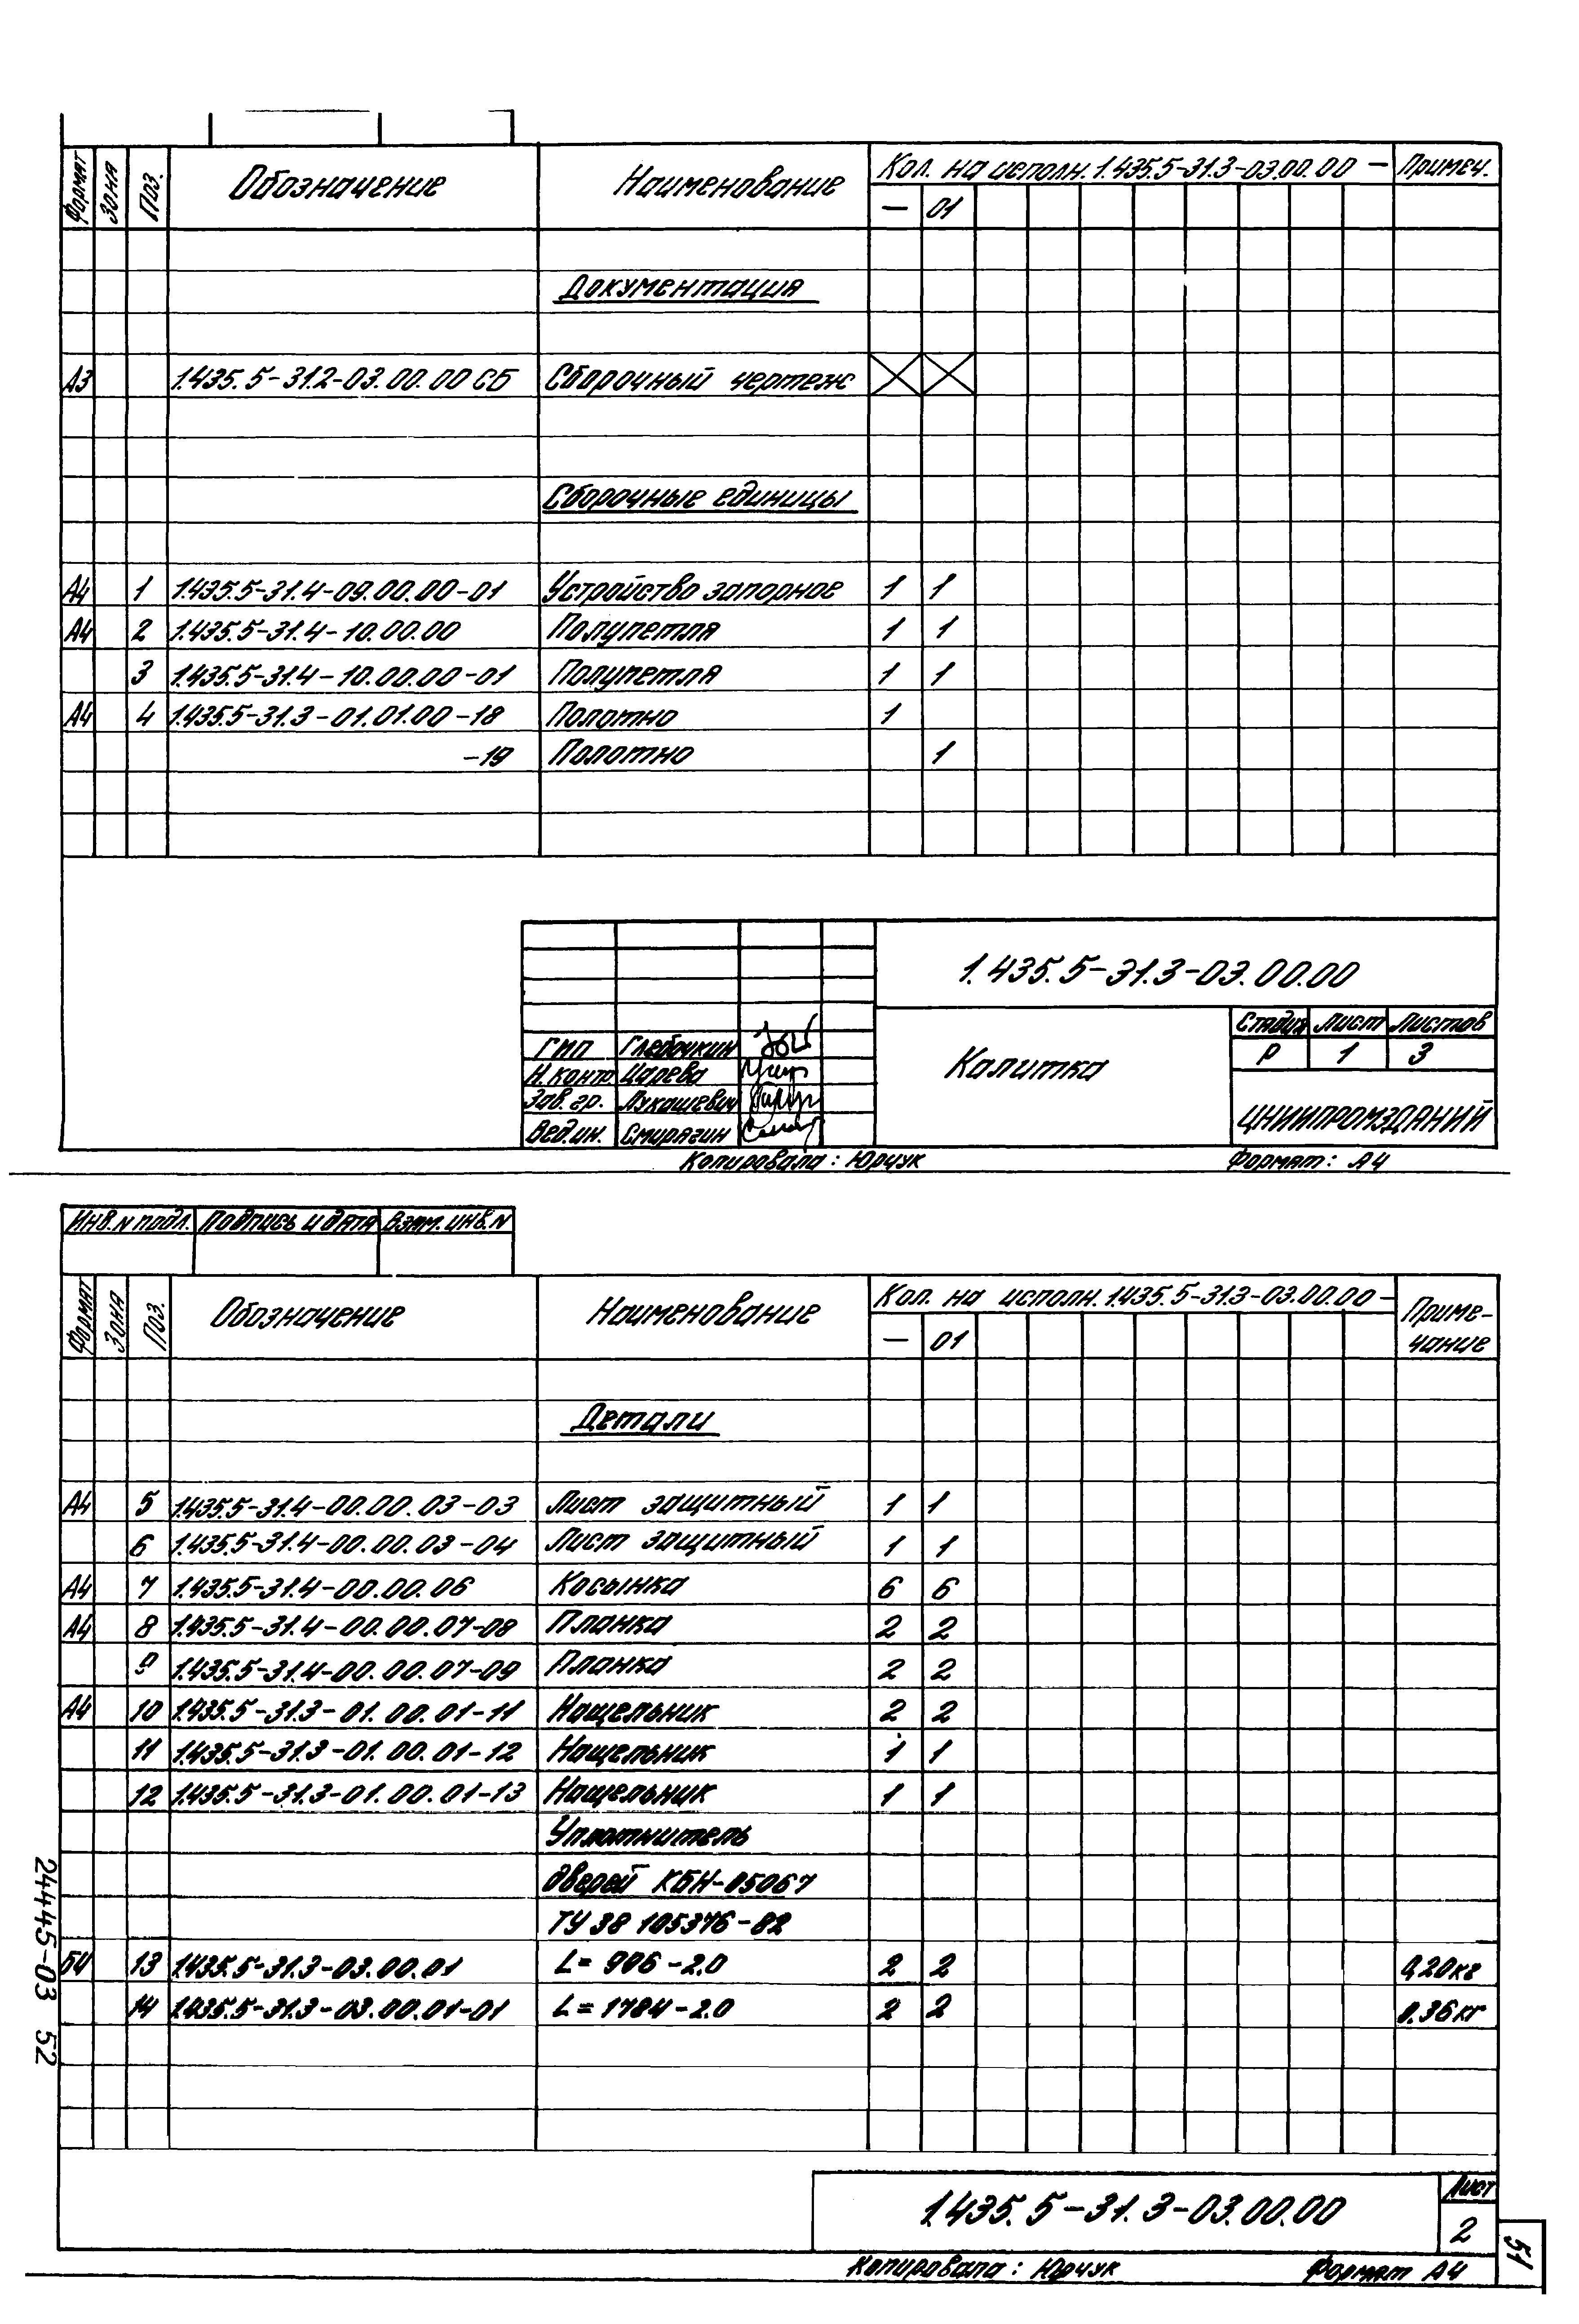 Формат Зона Поз. Обозначение Наименование Кол. на исполн. 1.435.5-31.3-03.00.00 — Примеч.
— 01
Документация
А3 1.435.5-31.2-03.00.00 СБ Сборочный чертеж
Сборочные единицы
А4 1 1.435.5-31.4-09.00.00-01 Устройство запорное 1 1
А4 2 1.435.5-31.4-10.00.00 Полупетля 1 1
3 1.435.5-31.4-10.00.00-01 Полупетля 1 1
А4 4 1.435.5-31.3-01.01.00-18 Полотно 1
-19 Полотно 1
1.435.5-31.3-03.00.00
Стадия Лист Листов
ГИП Глебочкин
Калитка
Р 1 3
Н. контр Царева
Зав. гр. Лукашевич
ЦНИИПРОМЗДАНИЙ
Вед.ин. Смирягин
Копировала: Юрчук Формат: А4
Инв. N подл. Подпись и дата Взам. инв. N
Формат Зона Поз. Обозначение Наименование Кол. на исполн. 1.435.5-31.3-03.00.00 — Приме-
чание
— 01
Детали
А4 5 1.435.5-31.4-00.00.03-03 Лист защитный 1 1
6 1.435.5-31.4-00.00.03-04 Лист защитный 1 1
А4 7 1.435.5-31.4-00.00.06 Косынка 6 6
А4 8 1.435.5-31.4-00.00.07-08 Планка 2 2
9 1.435.5-31.4-00.00.07-09 Планка 2 2
А4 10 1.435.5-31.3-01.00.01-11 Нащельник 2 2
11 1.435.5-31.3-01.00.01-12 Нащельник 1 1
12 1.435.5-31.3-01.00.01-13 Нащельник 1 1
Уплотнитель
дверей КБН-05067
ТУ 38 105376-82
БЧ 13 1.435.5-31.3-03.00.01 L= 906-2.0 2 2 0,20кг
14 1.435.5-31.3-03.00.01-01 L= 1784-2.0 2 2 0.36 кг
24445-03 52
1.435.5-31.3-03.00.00
Лист
2
51
Копировала: Юрчук Формат А4